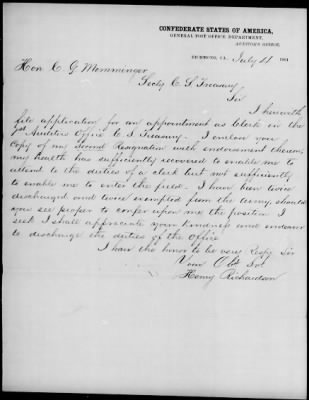 CONFEDERATE STATES OF AMERICA,
GENERAL POST OFFICE DEPARTMENT,
AUDITOR'S OFFICE,
RICHMOND, VA. July 11 186
Hon C G Memminger
Secty C S Treasury
Sir
I herewith
file application for an appointment as Clerk in the
1st Auditors Office C S Treasury. I enclose you
Copy of my Second Resignation with endorsement thereon,
my health has sufficiently recovered to enable me to
attend to the duties of a clerk but not sufficiently
to enable me to enter the field. I have been twice
discharged and twice exempted from the army, should
you see proper to confer upon me the position I
seek I shall appreciate your kindness and endeavor
to discharge the duties of the Office
I have the honor to be very Respy Sir
Your Obt Svt
Henry Richardson